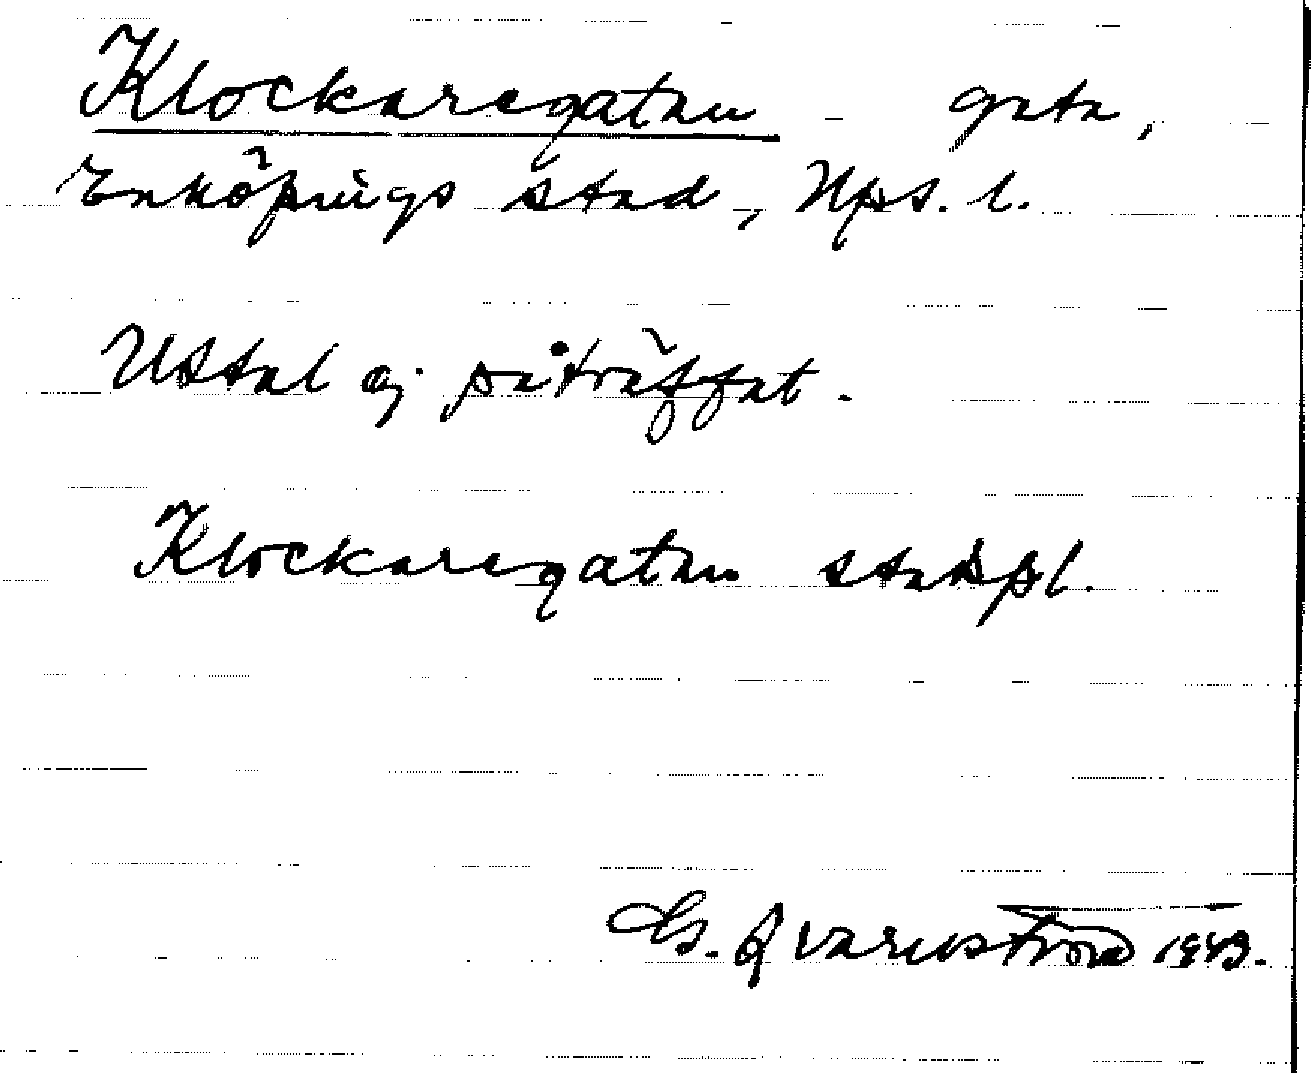 Klockaregatan gata,
Enköpings stad, Ups. l.
Uttal ej påträffat.
Klockaregatan stadspl.
G. Qvarnström 1943.